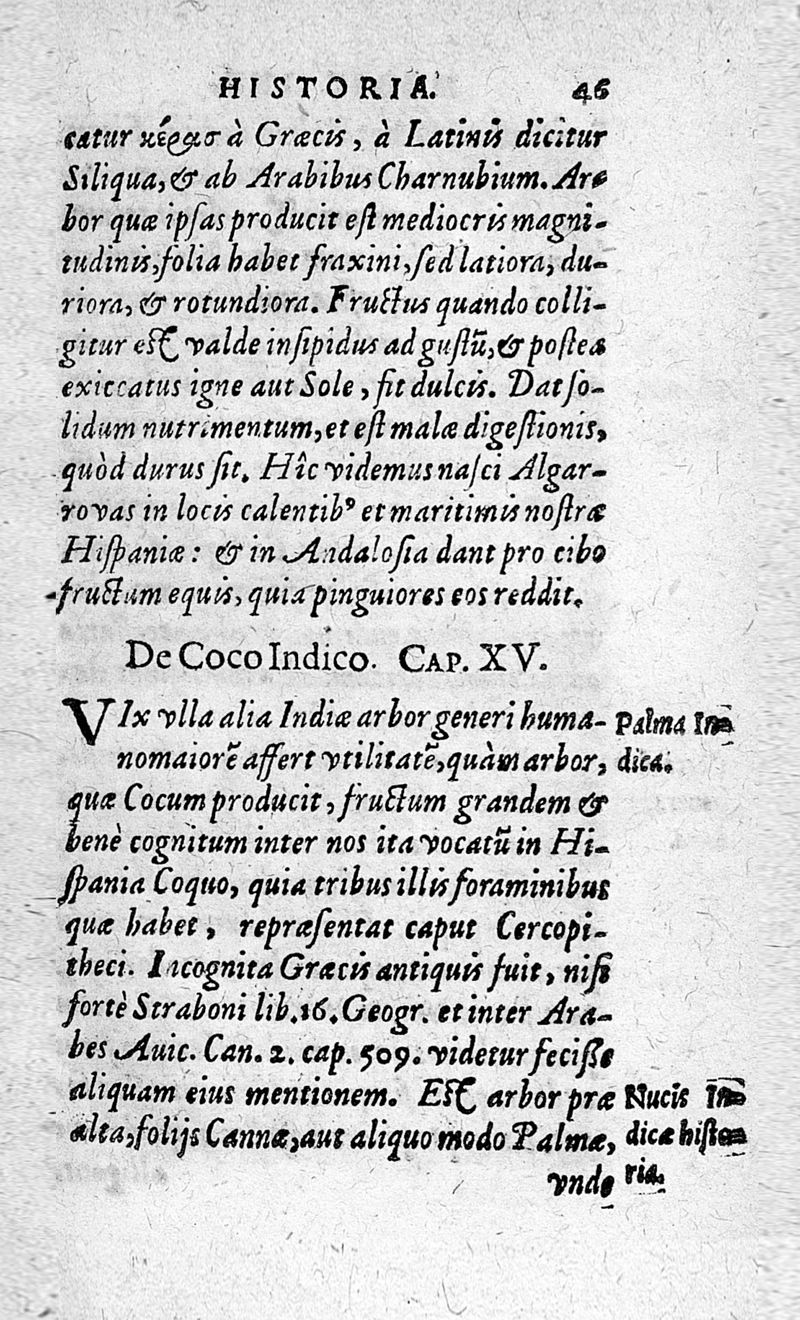 HISTORIA. 46
catur κέρας à Græcis, à Latinis dicitur
Siliqua, & ab Arabibus Charnubium. Ar-
bor quæ ipſas producit eſt mediocris magni-
tudinis, folia habet fraxini, ſed latiora, du-
riora, & rotundiora. Fructus quando colli-
gitur eſt valde inſipidus ad guſtũ, & poſtea
exiccatus igne aut Sole, fit dulcis. Dat ſo-
lidum nutrimentum, et eſt malæ digeſtionis,
quòd durus ſit. Hîc videmus naſci Algar-
rovas in locis calentibꝰ et maritimis noſtræ
Hiſpaniæ: & in Andaloſia dant pro cibo
fructum equis, quia pinguiores eos reddit.
De Coco Indico. CAP. XV.
VIx vlla alia Indiæ arbor generi huma- Palma In-
no maiorẽ affert vtilitatẽ, quàm arbor, dica.
quæ Cocum producit, fructum grandem &
benè cognitum inter nos ita vocatũ in Hi-
ſpania Coquo, quia tribus illis foraminibus
quæ habet, repræſentat caput Cercopi-
theci. Incognita Græcis antiquis fuit, niſi
fortè Straboni lib. 16. Geogr. et inter Ara-
bes Auic. Can. 2. cap. 509. videtur feciſſe
aliquam eius mentionem. Eſt arbor præ Nucis In-
alta, folijs Cannæ, aut aliquo modo Palmæ, dicæ hiſto-
vnde ria.